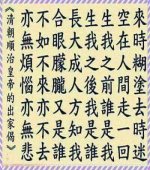 來時糊塗去時迷
空在人間走一回
生我之前誰是我
生我之後我是誰
長大成人方知我
合眼朦朧又是誰
不如不來又不去
亦無煩惱亦無悲
《清朝順治皇帝的出家偈》